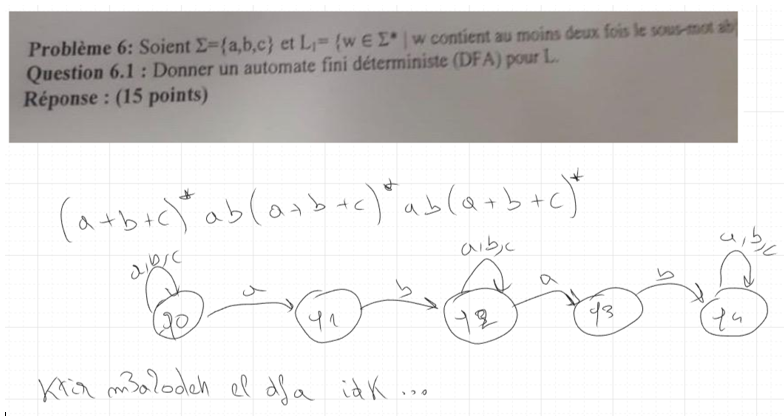 Problème 6: Soient Σ={a,b,c} et L₁= {w ∈ Σ* | w contient au moins deux fois le sous-mot ab}
Question 6.1 : Donner un automate fini déterministe (DFA) pour L.
Réponse : (15 points)
(a+b+c)* ab(a+b+c)* ab(a+b+c)*
a,b,c a,b,c a,b,c
q0 a q1 b q2 a q3 b q4
Ktir m3a2odeh el dfa idk ...